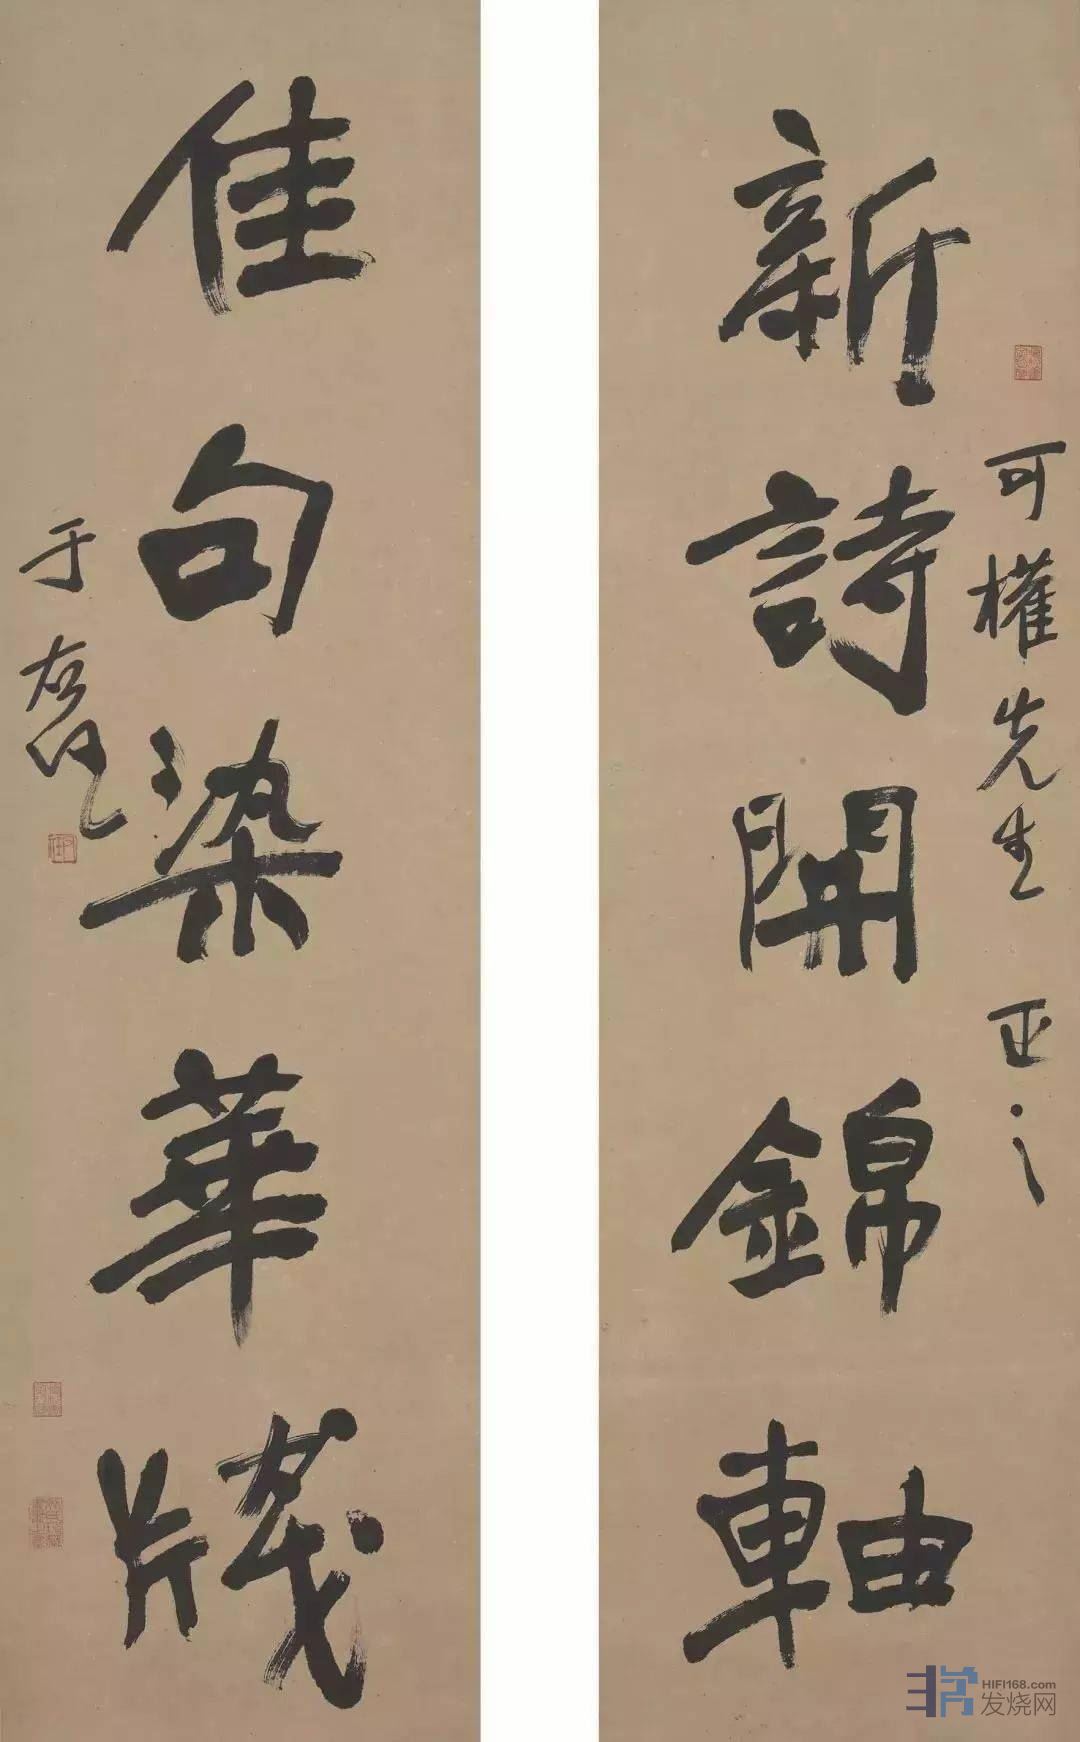 可權先生 正之
新詩開錦軸
佳句染華牋
于右任
HIFI168.com
发烧网